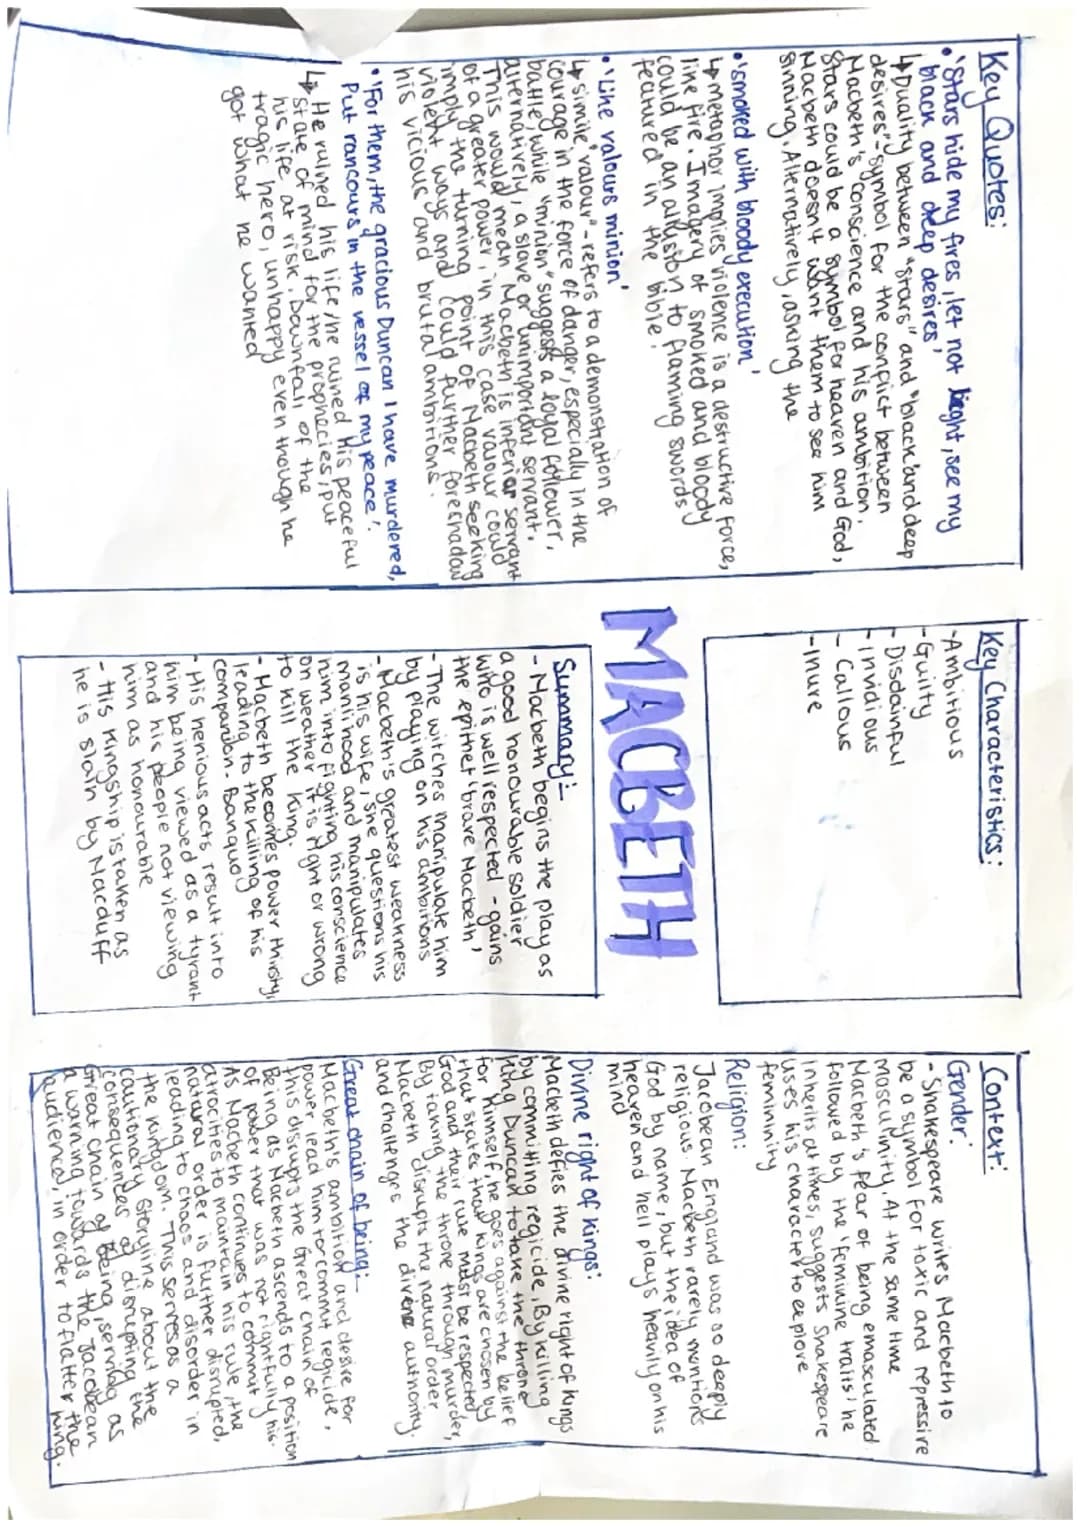 Key Quotes:
• 'Stars hide my fires, let not light, see my
black and deep desires'
↳ Duality between "stars" and "black 'and deep
desires" - symbol for the conflict between
Macbeth's conscience and his ambition.
Stars could be a symbol for heaven and God,
Macbeth doesn't want them to see him
sinning. Alternatively, asking the
• 'smoked with bloody execution'
↳ metaphor implies violence is a destructive force,
like fire. Imagery of smoked and bloody
could be an allusion to flaming swords
featured in the bible.
• 'Like valours minion'
↳ simile 'valour" - refers to a demonstration of
courage in the force of danger, especially in the
battle, while "minion" suggests a loyal follower,
alternatively, a slave or unimportant servant.
This would mean Macbeth is inferior servant
of a greater power, in this case valour could
imply the turning point of Macbeth seeking
violent ways and could further foreshadow
his vicious and brutal ambitions.
• 'For them, the gracious Duncan I have murdered,
Put rancours in the vessel of my peace'.
↳ He ruined his life, he ruined his peaceful
state of mind for the prophecies, put
his life at risk. Downfall of the
tragic hero, unhappy even though he
got what he wanted
Key Characteristics:
- Ambitious
- Guilty
- Disdainful
- Invidious
- Callous
- Inure
MACBETH
Summary:-
- Macbeth begins the play as
a good honourable soldier
who is well respected - gains
the epithet 'brave Macbeth'
- The witches manipulate him
by playing on his ambitions
- Macbeth's greatest weakness
is his wife, she questions his
manlihood and manipulates
him into fighting his conscience
on weather it is right or wrong
to kill the King.
- Macbeth becomes power thirsty,
leading to the killing of his
companion - Banquo
- His henious acts result into
him being viewed as a tyrant
and his people not viewing
him as honourable
- His Kingship is taken as
he is slain by Macduff
Context:
Gender:
- Shakespeare writes Macbeth to
be a symbol for toxic and repressive
masculinity. At the same time
Macbeth's fear of being emasculated
followed by the 'feminine traits' he
inherits at times, suggests Shakespeare
uses his character to explore
femininity
Religion:
Jacobean England was so deeply
religious. Macbeth rarely mentions
God by name, but the idea of
heaven and hell plays heavily on his
mind
Divine right of kings:
Macbeth defies the divine right of kings
by commiting regicide. By killing
King Duncan to take the throne
for himself, he goes against the belief
that states that kings are chosen by
God and their rule must be respected
By taking the throne through murder,
Macbeth disrupts the natural order
and challenges the divine authority.
Great chain of being:-
Macbeth's ambition and desire for
power lead him to commit regicide,
this disrupts the Great chain of
Being as Macbeth ascends to a position
of power that was not rightfully his.
As Macbeth continues to commit
atrocities to maintain his rule, the
natural order is further disrupted,
leading to chaos and disorder in
the kingdom. This serves as a
cautionary storyline about the
consequences of disrupting the
Great chain of Being, serving as
a warning towards the Jacobean
audience in order to flatter the
king.